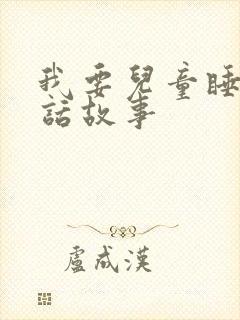 我要兒童睡
話故事
盧成漢